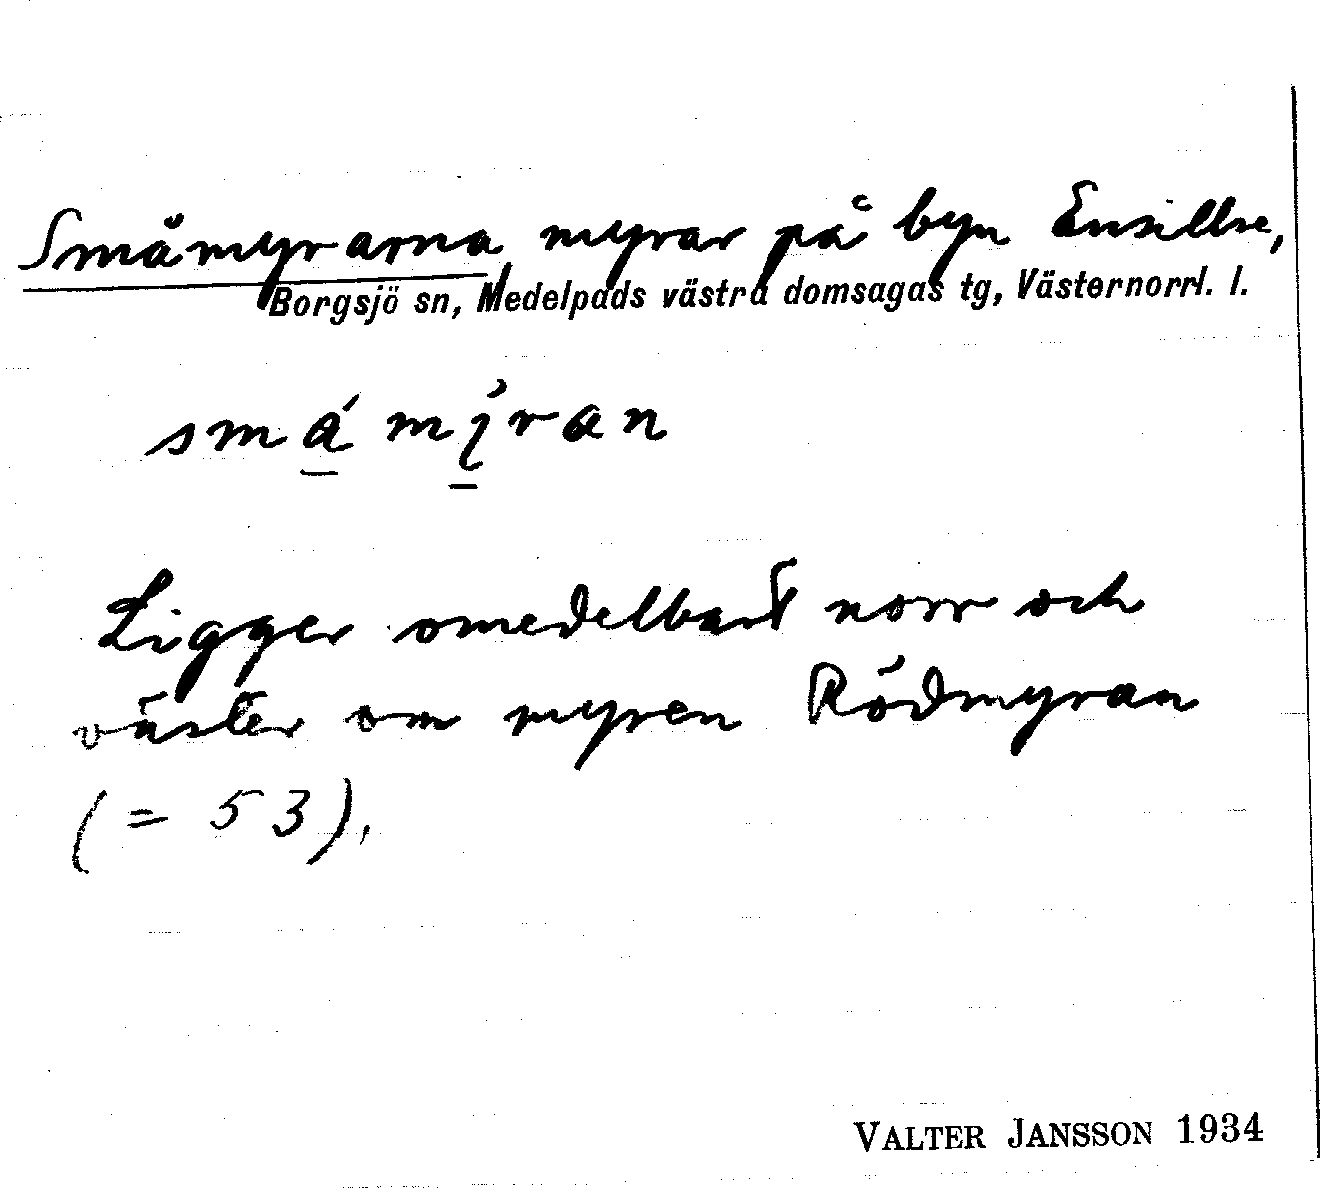 Småmyrarna, myrar på byn Ensillre,
Borgsjö sn, Medelpads västra domsagas tg, Västernorrl. l.
småmíran
Ligger omedelbart norr och
väster om myren Rödmyran
(= 53).
VALTER JANSSON 1934